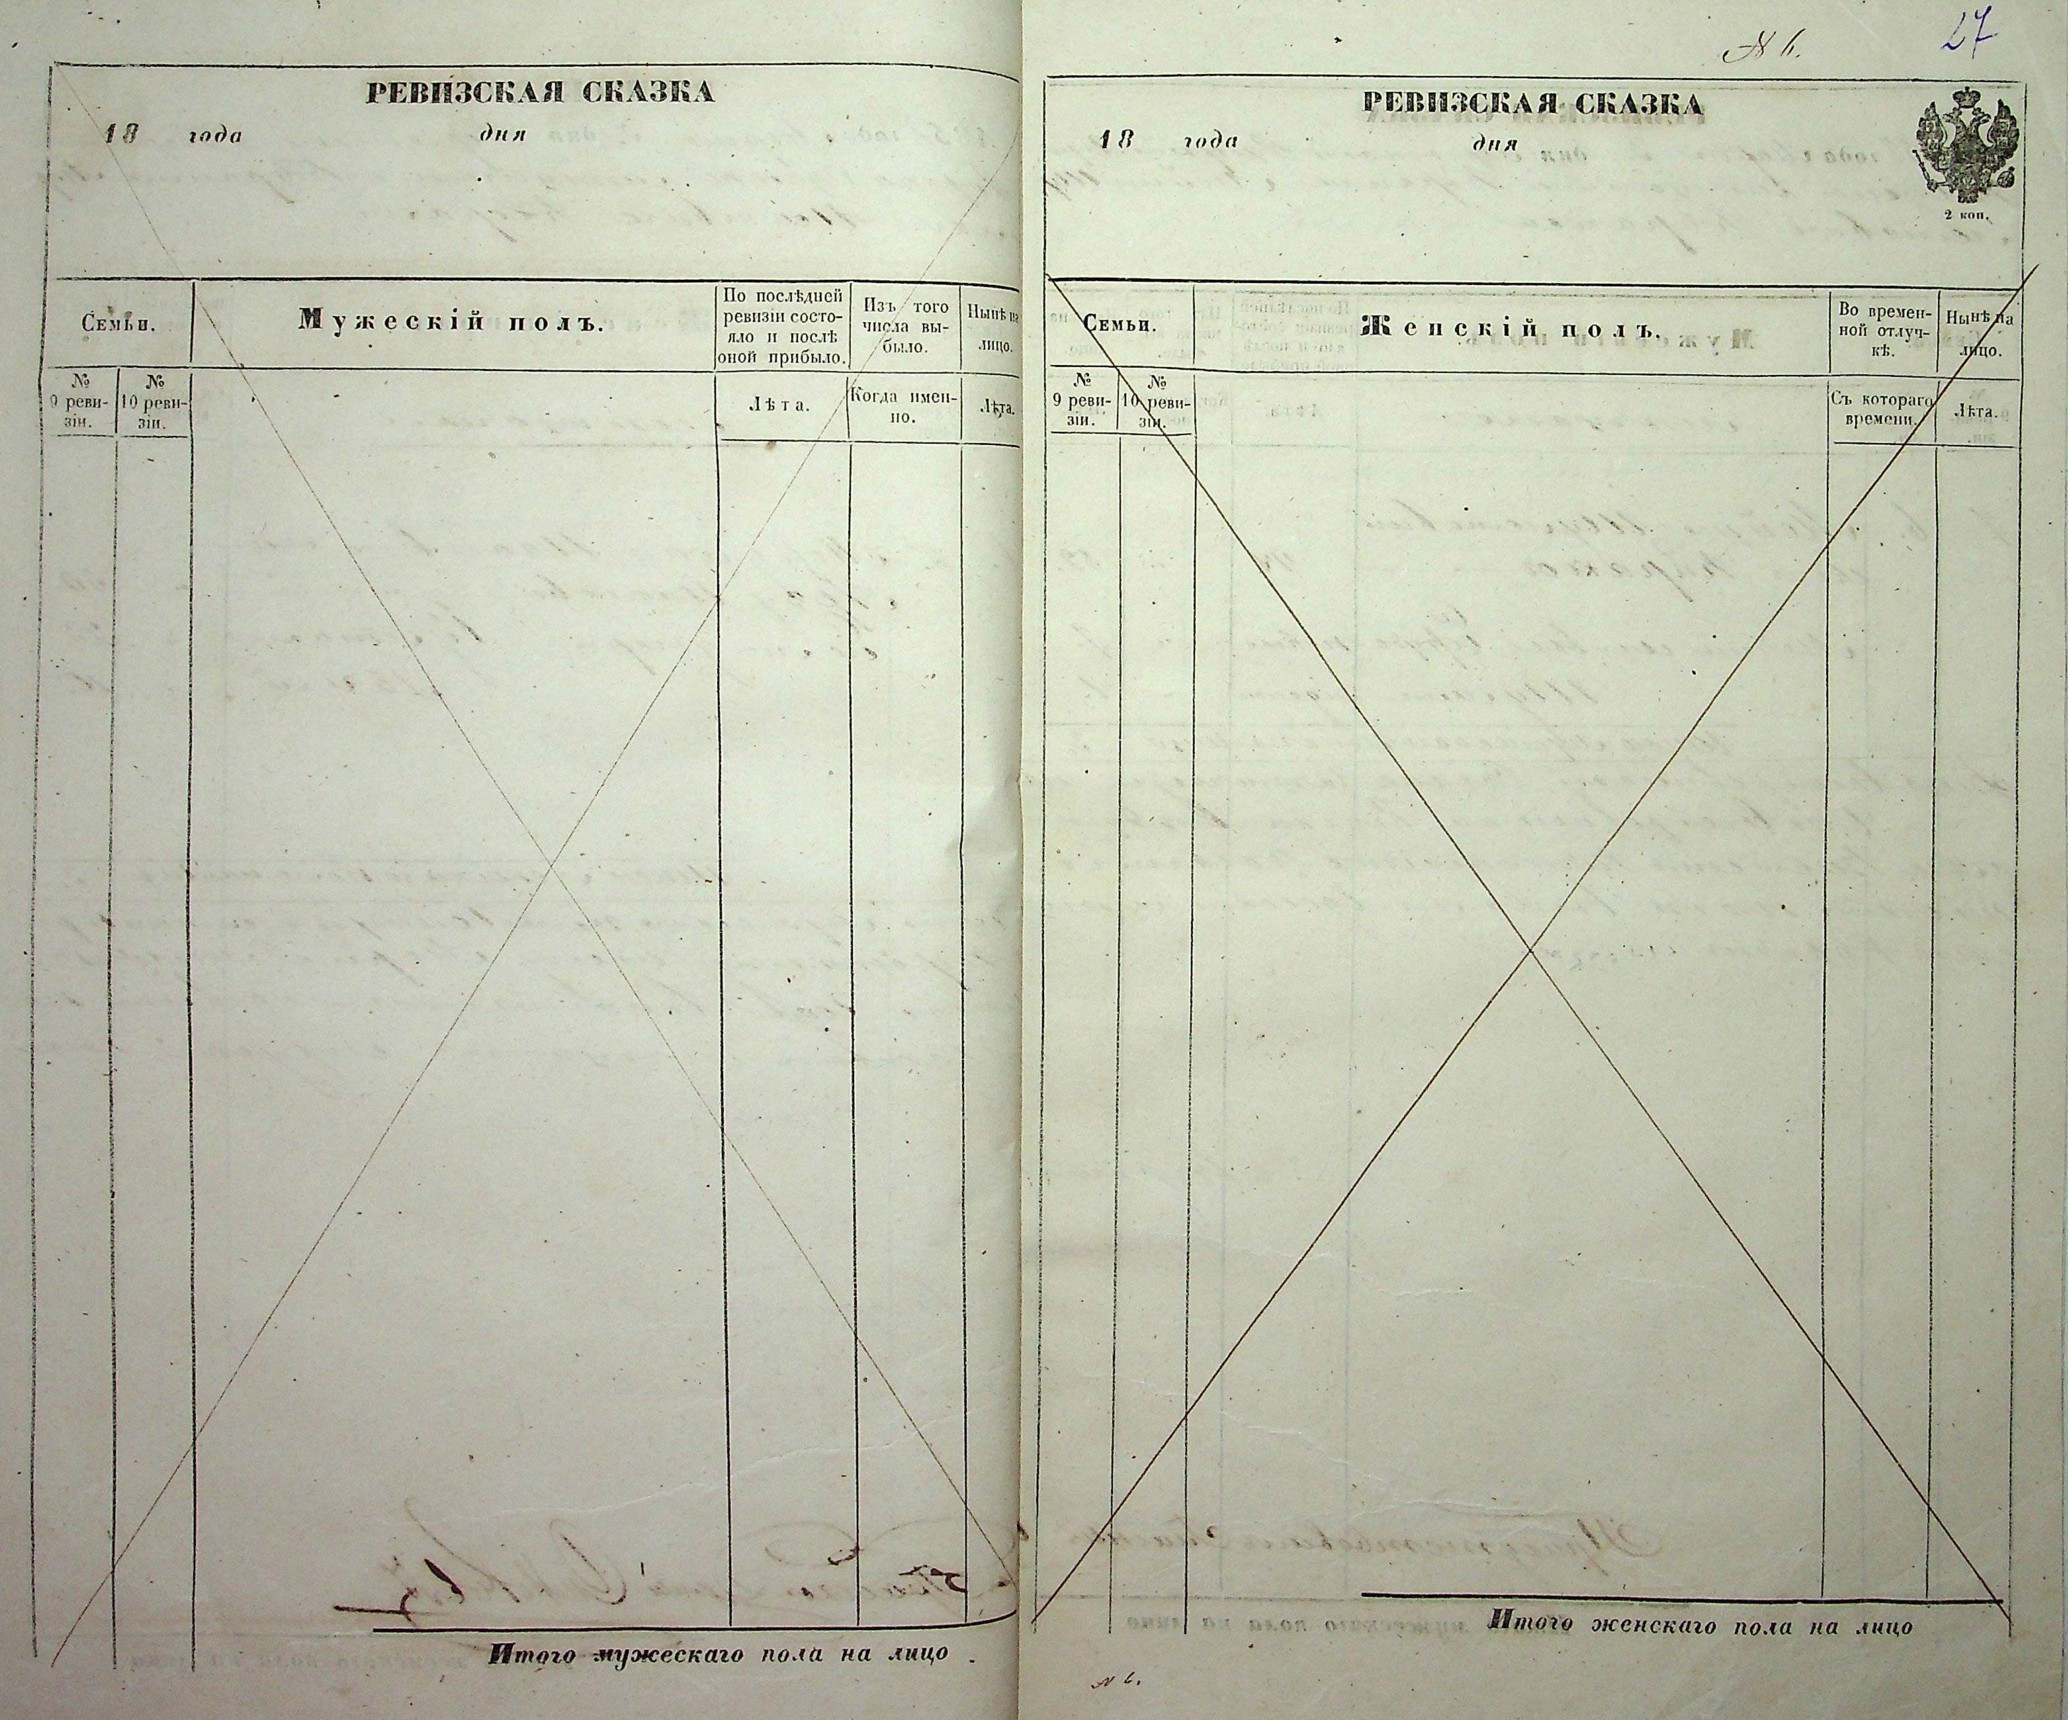 РЕВИЗСКАЯ СКАЗКА
18 года дня
Семьи.
Мужескій полъ.
По послѣдней
ревизіи состо-
яло и послѣ
оной прибыло.
Изъ того
числа вы-
было.
Нынѣ на
лицо.
№
9 реви-
зіи.
№
10 реви-
зіи.
Лѣта.
Когда имен-
но.
Лѣта.
Итого мужескаго пола на лицо
27
РЕВИЗСКАЯ СКАЗКА
18 года дня
2 коп.
Семьи.
Женскій полъ.
Во времен-
ной отлуч-
кѣ.
Нынѣ на
лицо.
№
9 реви-
зіи.
№
10 реви-
зіи.
Съ котораго
времени.
Лѣта.
Итого женскаго пола на лицо